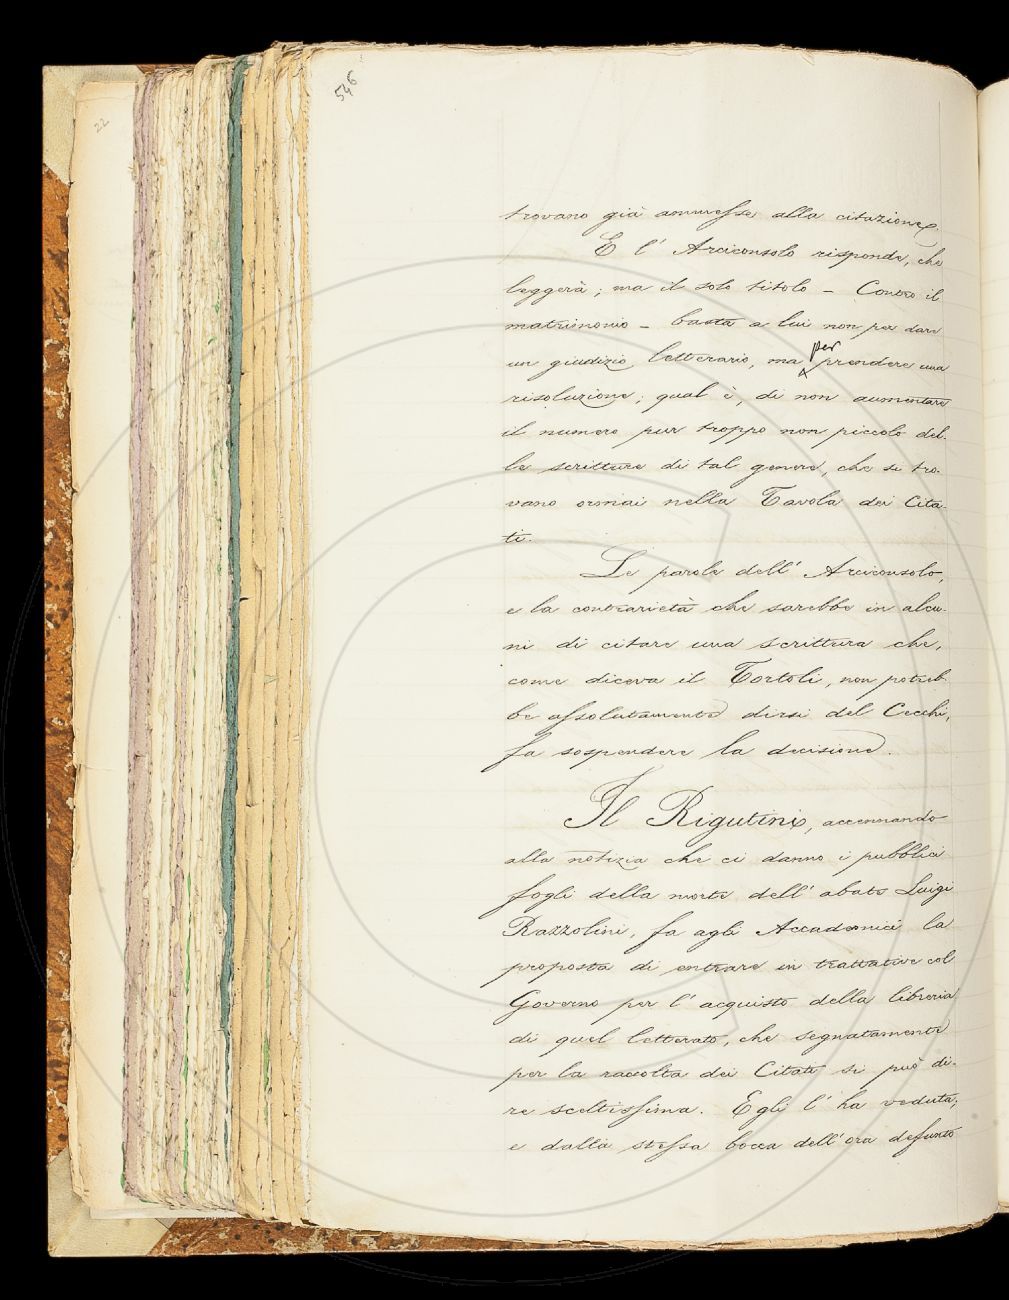 546
22
trovano già ammesse alla citazione.
E l' Arciconsolo risponde, che
leggerà; ma il solo titolo – Contro il
matrimonio – basta a lui non per dare
un giudizio letterario, ma per prendere una
risoluzione; qual è, di non aumentare
il numero pur troppo non piccolo del-
le scritture di tal genere, che si tro-
vano ormai nella Tavola dei Cita-
ti.
Le parole dell' Arciconsolo,
e la contrarietà che sarebbe in alcu-
ni di citare una scrittura che,
come diceva il Tortoli, non potreb-
be assolutamente dirsi del Cecchi,
fa sospendere la decisione.
Il Rigutini, accennando
alla notizia che ci danno i pubblici
fogli della morte dell' abate Luigi
Razzolini, fa agli Accademici la
proposta di entrare in trattative col
Governo per l' acquisto della libreria
di quel letterato, che segnatamente
per la raccolta dei Citati si può di-
re sceltissima. Egli l' ha veduta,
e dalla stessa bocca dell' ora defunto